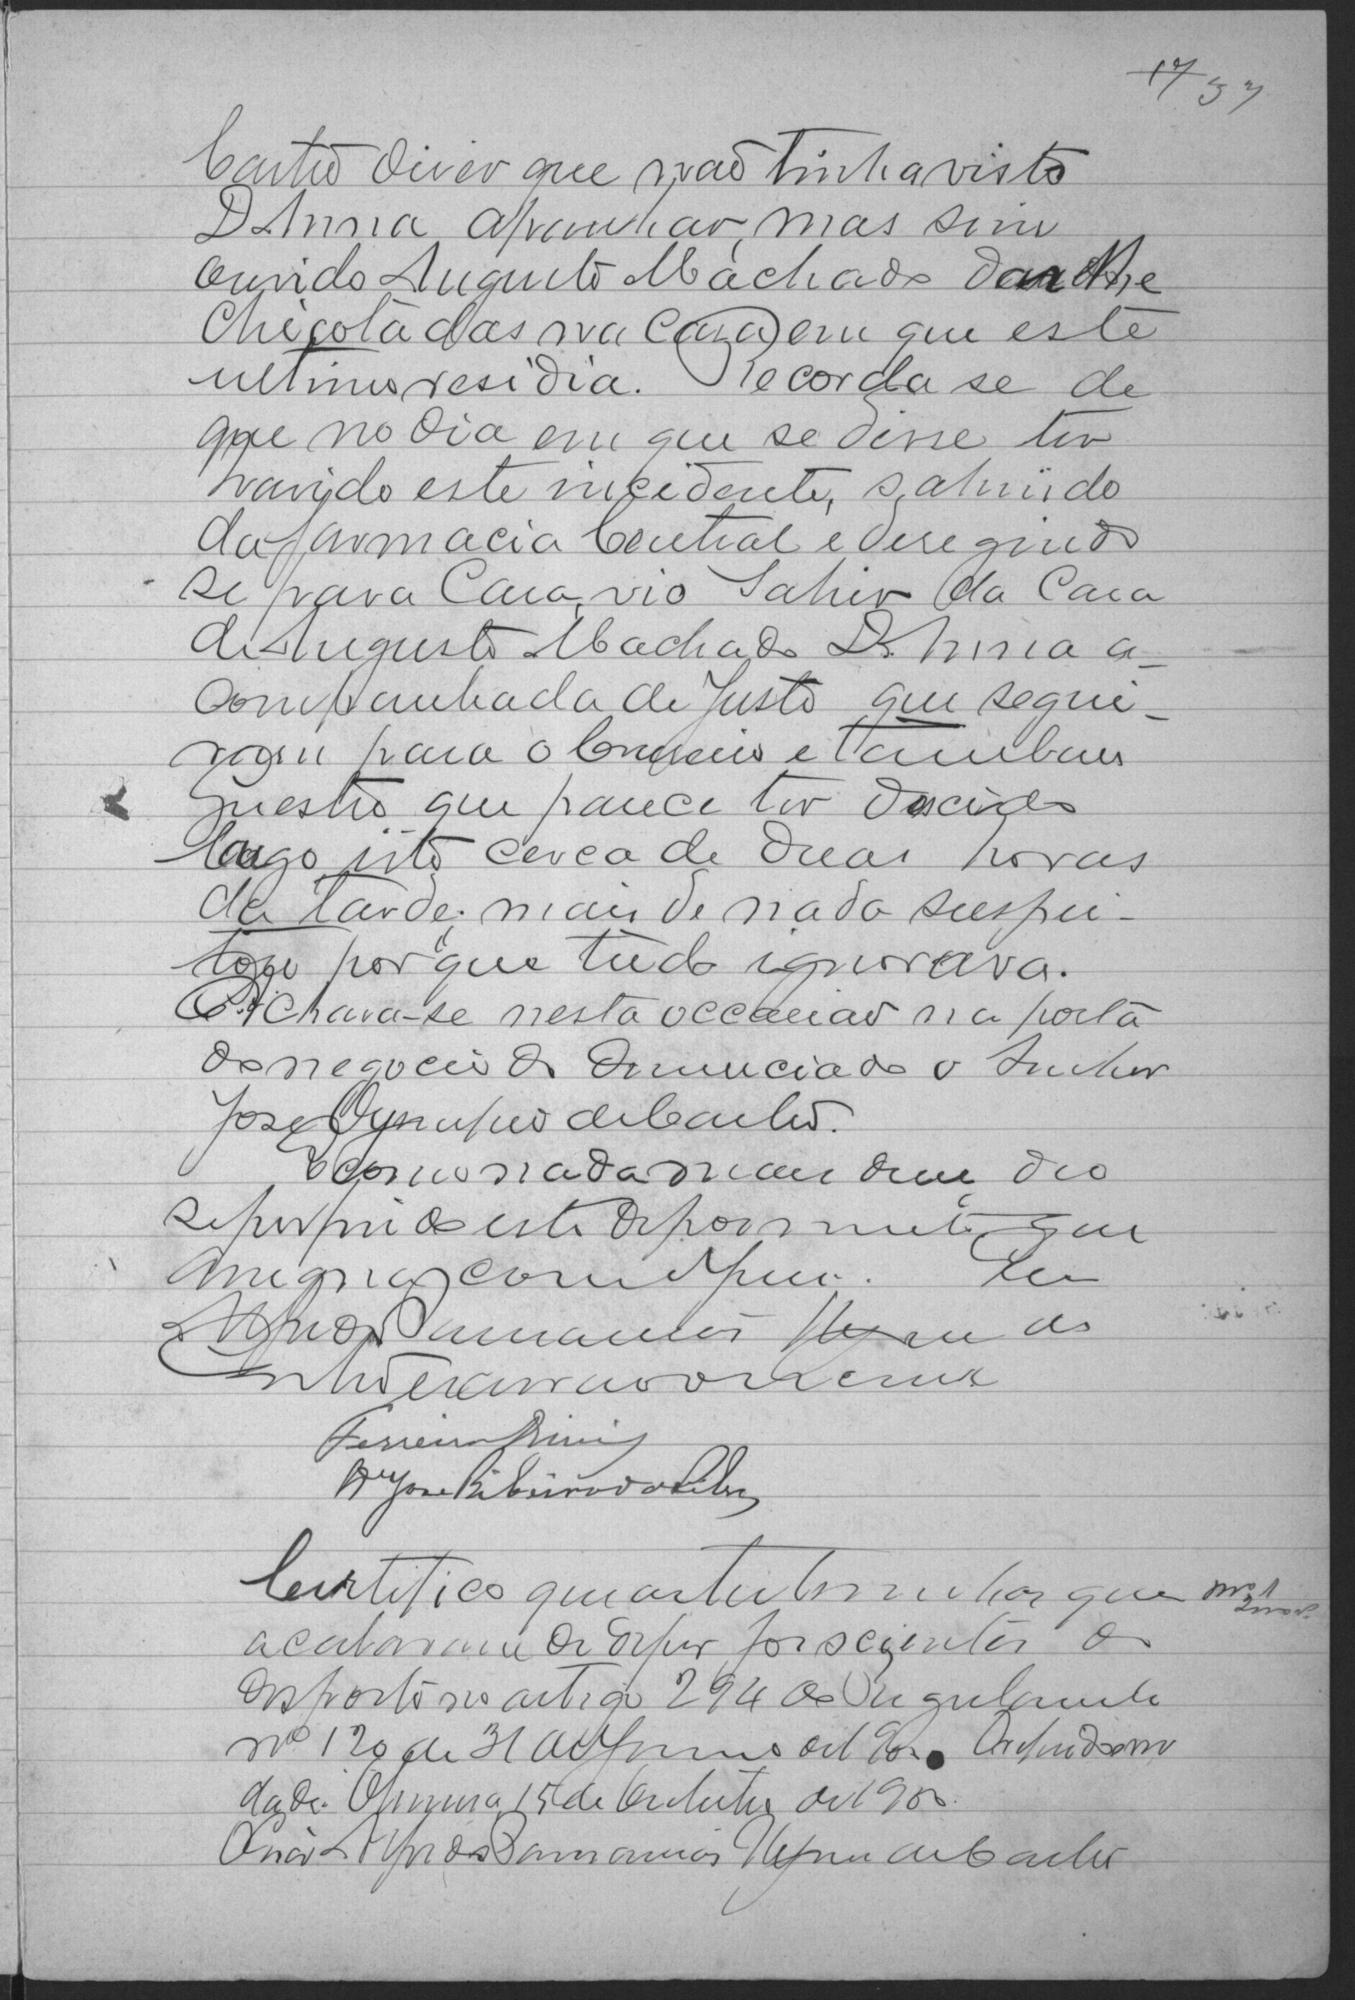 17 37
Castro dizer que não tinha visto
D. Anna apanhar, mas sim
ouvido Augusto Machado dar lhe
Chicotadas na casa em que este
ultimo residia. Recorda se de
que no dia em que se disse ter
havido este incidente, sahindo
da farmacia Central e deregindo
se para Casa, vio Sahir da Casa
de Augusto Machado D. Anna a-
companhada de Justo que segui-
ram para o Commercio e tambem
mestre que parece ter descido
logo isto cerca de duas horas
da tarde; mais de nada suspei-
tou por que tudo ignorava.
Achava-se nesta occasião na porta
do negocio do denunciado o Senhor
José Olympio de Castro.
E como nada mais disse, deo
se por findo este depoimento que
assigna com o Juiz. Eu
Alfredo Damasceno
escrivão o escrevi
Ferreira Diniz
José Ribeiro da Silva
Certifico que as testemunhas que
acabaram de depor forão scientes do
disposto no artigo 294 do Regulamento
nº 120 de 31 de Janeiro de
dade. 15 de Outubro de 1900.
Alfredo Damasceno de Castro